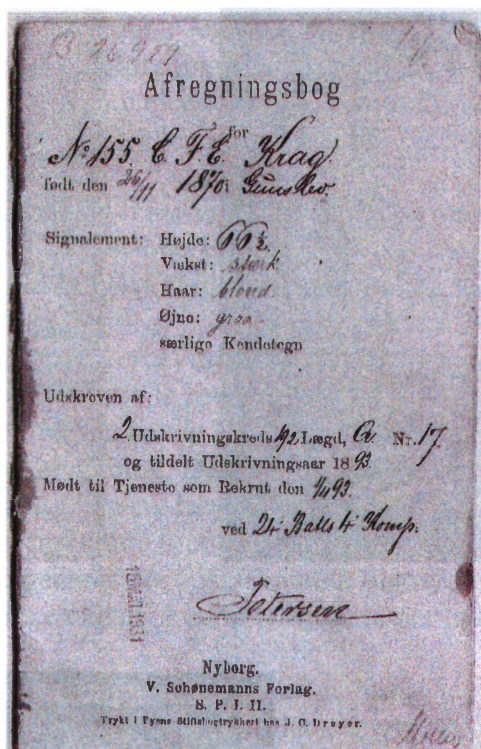 B 26929
Afregningsbog
for
No 155. C. F. E. Krag.
født den 26/11 1870 i Gimslev
Signalement: Højde: 66½
Vækst: stærk
Haar: blond
Øjne: graa
særlige Kendetegn
Udskreven af:
2. Udskrivningskreds 192 Lægd, Nr. 17.
og tildelt Udskrivningsaar 1893.
Mødt til Tjeneste som Rekrut den 93.
ved 24' Batls 4' Komp.
Petersen
Nyborg.
V. Schønemanns Forlag.
S. P. J. H.
Trykt i Fyens Stiftsbogtrykkeri hos J. C. Dreyer.